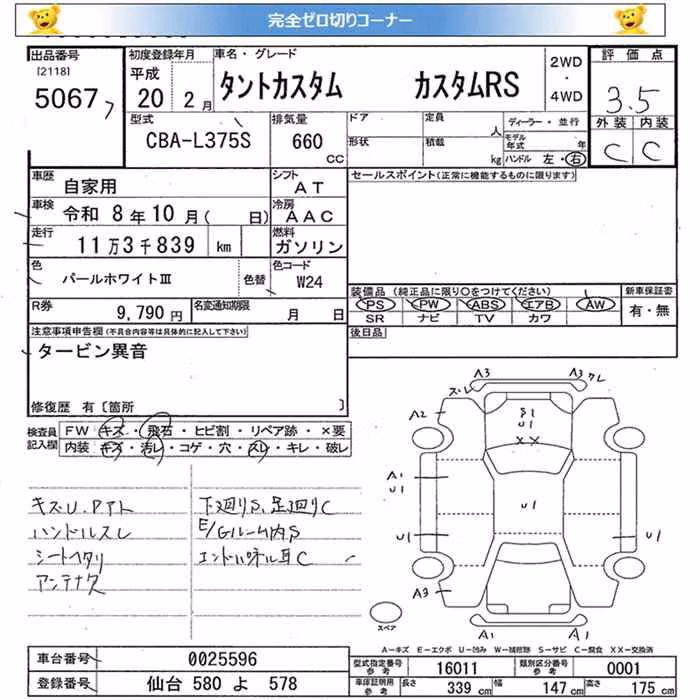 完全ゼロ切りコーナー
出品番号 初度登録年月 車名・グレード 評価点
[2118] 平成 2WD
5067 20 2月 タントカスタム カスタムRS ・ 3.5
4WD
型式 排気量 ドア 定員 人 ディーラー・並行 外装 内装
CBA-L375S 660 CC 形状 積載 kg モデル年式 年 C C
ハンドル 左・右
車歴 自家用 シフト AT セールスポイント(正常に機能するものに限ります)
車検 令和 8年10月( 日) 冷房 AAC
走行 11万3千839 km 燃料 ガソリン
色 パールホワイトⅢ 色替 色コード W24
装備品(純正品に限り○をつけてください) 新車保証書
R券 9,790円 名変通知期限 月 日 PS PW ABS エアB AW 有・無
SR ナビ TV カワ
注意事項申告欄(不具合内容等は具体的に記入して下さい) 後日品
タービン異音
修復歴 有〔箇所 〕
検査員記入欄 FW キズ・飛石・ヒビ割・リペア跡・×要
内装 キズ・汚レ・コゲ・穴・スレ・キレ・破レ
キズU.Pアト 下廻りS、足廻りC
ハンドルスレ E/Gルーム内S
シートヘタリ エンドパネル耳C
アンテナ欠
A3 A3 クレ
ズレ
A2 U1
XX
A1
U1
U1
U1 U1
A3
スペア A1 A1
A-キズ E-エクボ U-凹み W-補修跡 S-サビ C-腐食 XX-交換済
車台番号 0025596 型式指定番号 参考 16011 類別区分番号 参考 0001
登録番号 仙台 580 よ 578 車庫証明用 参考 長さ 339cm 幅 147cm 高さ 175cm